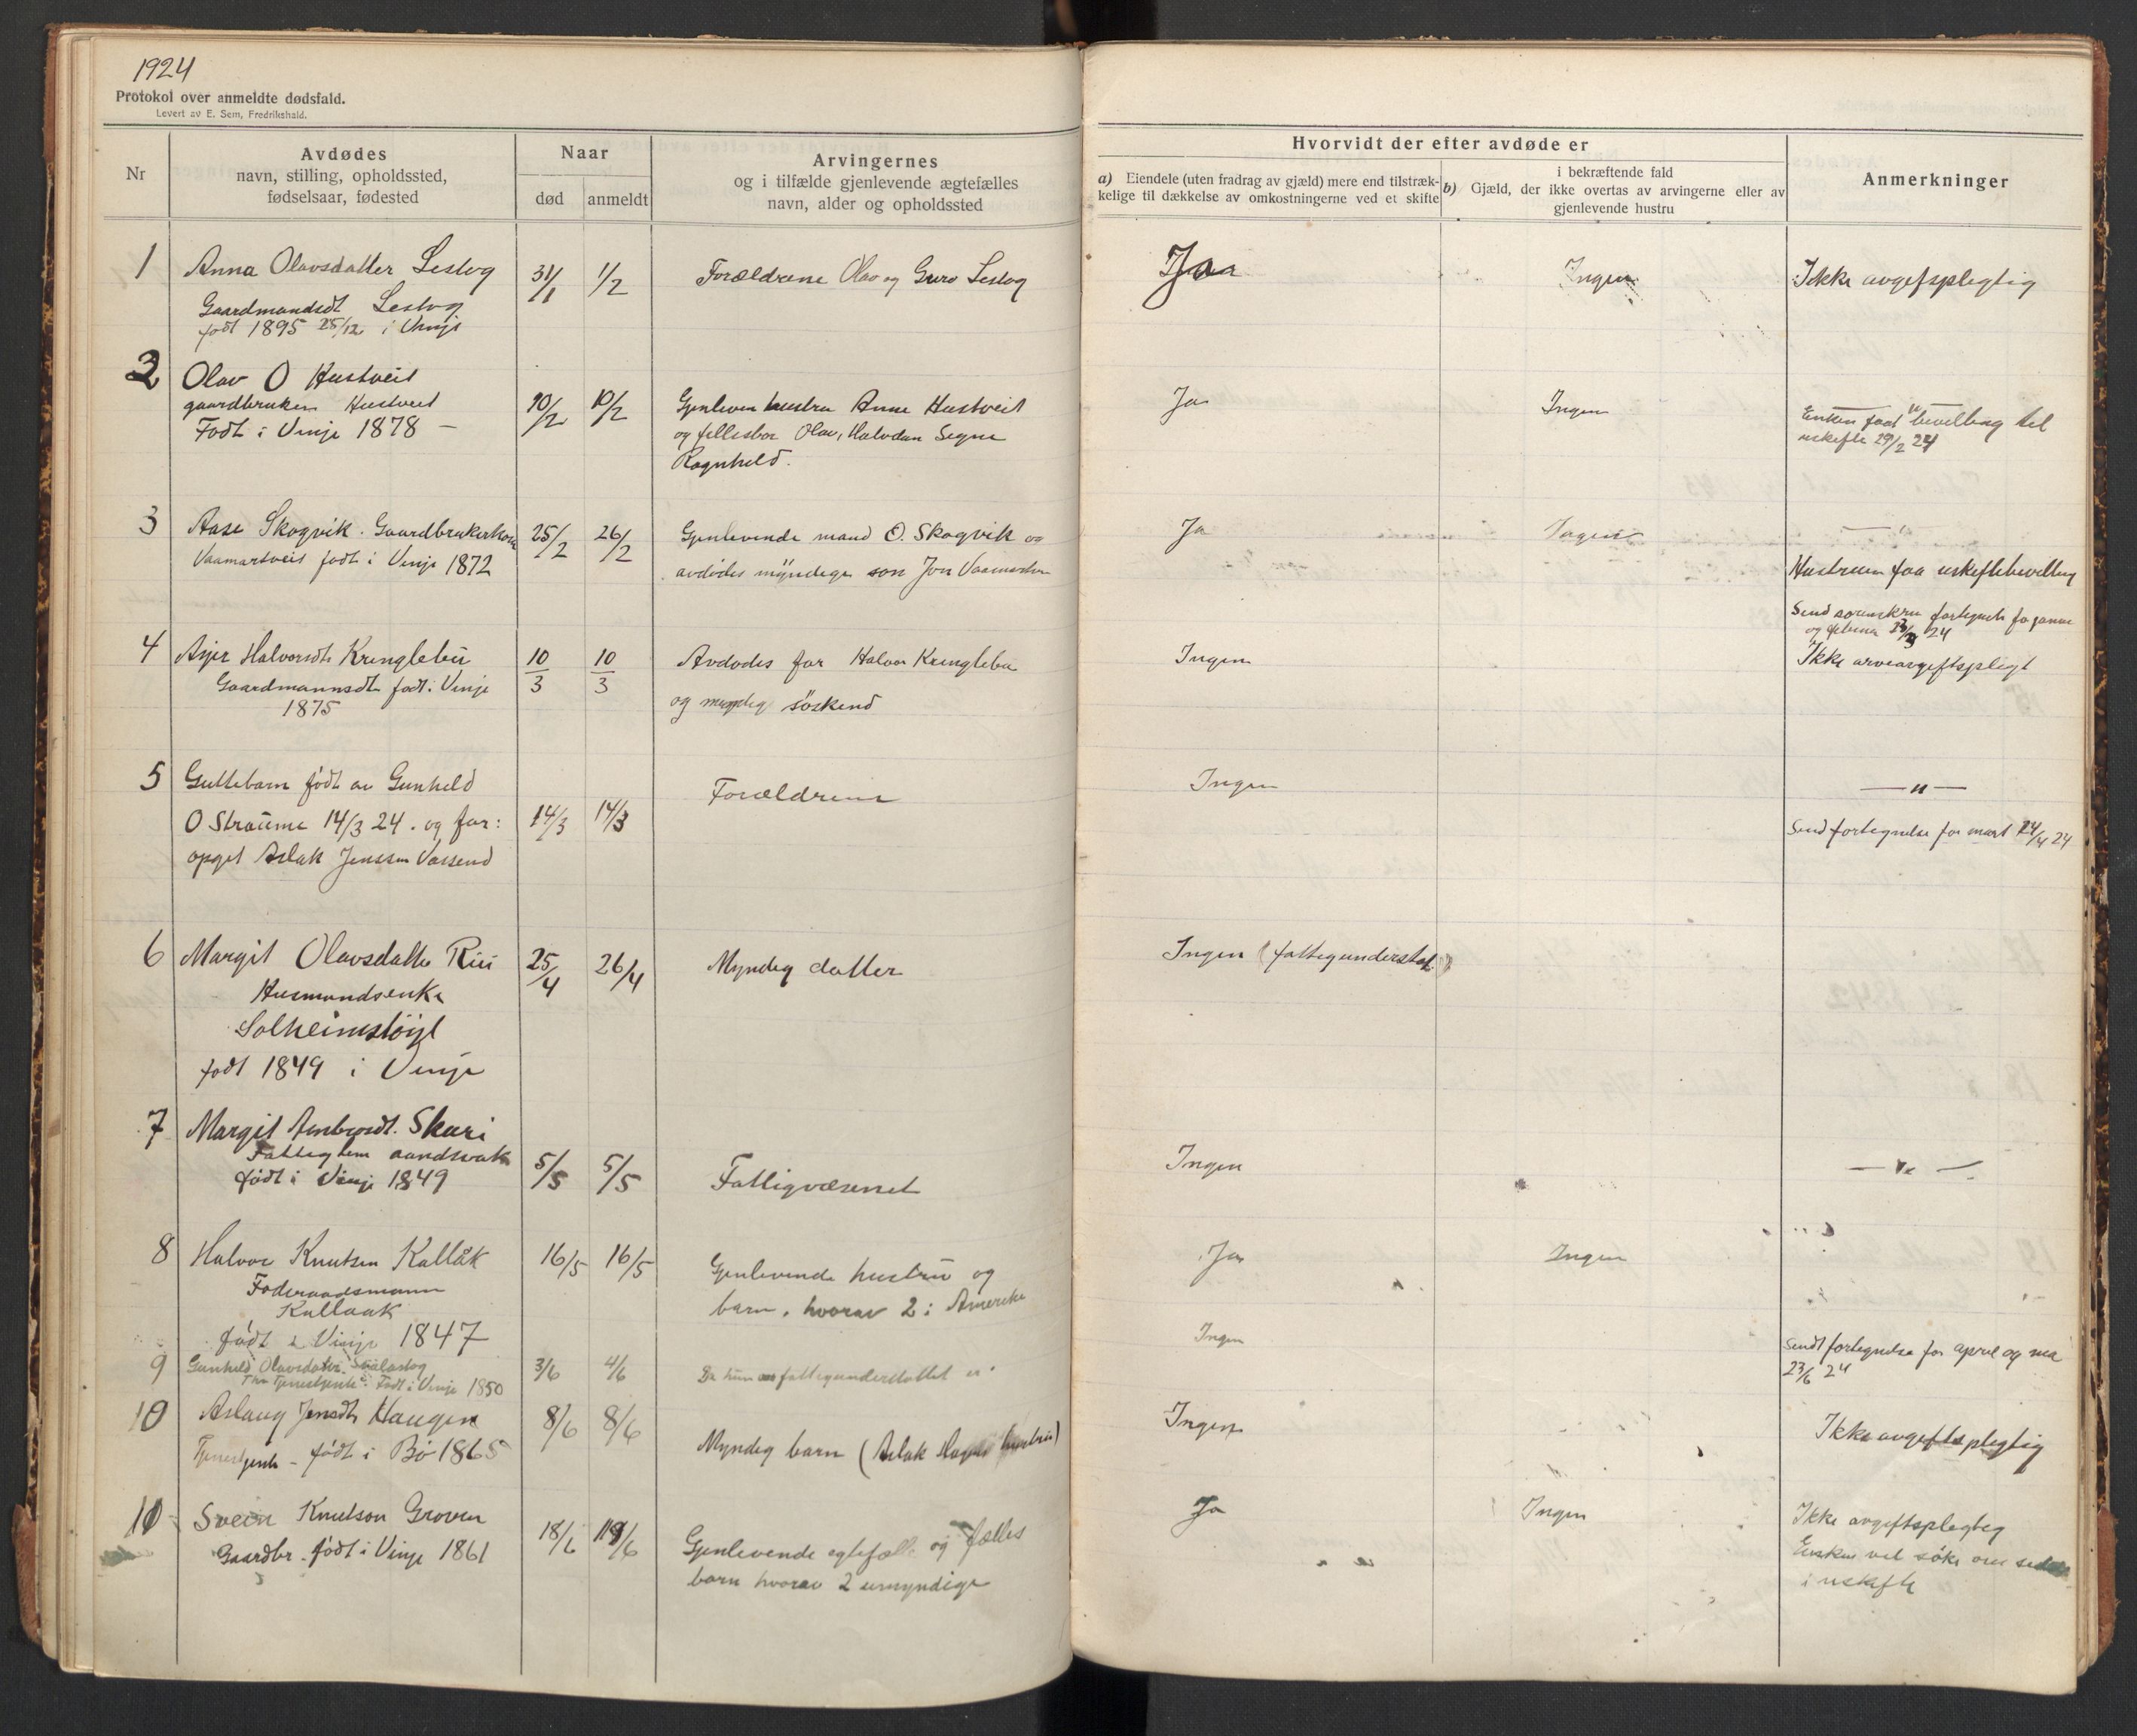 1924
Protokol over anmeldte dødsfald.
Levert av E. Sem, Fredrikshald.
Nr
Avdødes
navn, stilling, opholdssted,
fødselsaar, fødested
Naar
død
anmeldt
Arvingernes
og i tilfælde gjenlevende ægtefælles
navn, alder og opholdssted
Hvorvidt der efter avdøde er
a) Eiendele (uten fradrag av gjæld) mere end tilstræk-
kelige til dækkelse av omkostningerne ved et skifte
i bekræftende fald
b) Gjæld, der ikke overtas av arvingerne eller av
gjenlevende hustru
Anmerkninger
1
Anna Olavsdatter Lestog
Gaardmandsdt Lestog
født 1895 25/12 i Vinje
31/1
1/2
Forældrene Olav og Guro Lestog
Ja
Ingen
Ikke avgefsplegtig
2
Olav O Hustveit
gaardbruker Hustveit
Født i Vinje 1878 –
10/2
10/2
Gjenleven hustru Anne Hustveit
og fellesbar Olav, Halvdan Segne
Ragnheld.
Ja
Ingen
— " —
Enken faat bevelling til
uskefte 29/2 24
3
Aase Skogvik. Gaardbrukerkone
Vaamartveit født i Vinje 1872
25/2
26/2
Gjenlevende mand O. Skogvik og
avdødes myndige søn Jon
Ja
Ingen
— " —
faa uskeftebevelling
Send fortegnels fo janua
og 24
4
Halvorsdt Kringlebu
Gaardmannsdt født i Vinje
1875
10/3
10/3
Avdødes far Halvor Kringlebu
og myndig søskend
Ingen
Ikke arveavgeftsplegt
5
Guttebarn født av Gunheld
O Straume 14/3 24. og far:
opget Aslak Jenssen Vassend
14/3
14/3
Forældrene
Ingen
— " —
Send fortegnelse for mart 24/4 24
6
Margit Olavsdatter Rui
Husmandsenke
født 1849 i Vinje
25/4
26/4
Myndig datter
Ingen (fattigunderstøt.)
7
Margit Skari
Fatteglem aandsvak
født i Vinje 1849
5/5
5/5
Fattigvæsenet
Ingen
— " —
8
Halvor Knutsen Kallåk
Føderaadsmann
Kallaak
født i Vinje 1847
16/5
16/5
Gjenlevende hustru og
barn, hvorav 2 i Amerika
Ja
Ingen
9
Gunheld Olavsdatter
Tjenestjente. Født i Vinje 1850
3/6
4/6
Da hun fattigunderstøttet er
Ingen
Sendt fortegnelse for april og mai
23/6 24
10
Aslaug Jensdt Haugen
Tjenestjente – født i Bø 1865
8/6
8/6
Myndig barn (Aslak
Ingen
Ikke avgeftsplegtig
11
Svein Knutson Groven
Gaardbr. født i Vinje 1861
18/6
19/6
Gjenlevende egtefælle og fælles
barn hvorav 2 umyndige
Ja
Ingen
Ikke avgeftsplegteg
Enken vil søke om
i uskefte